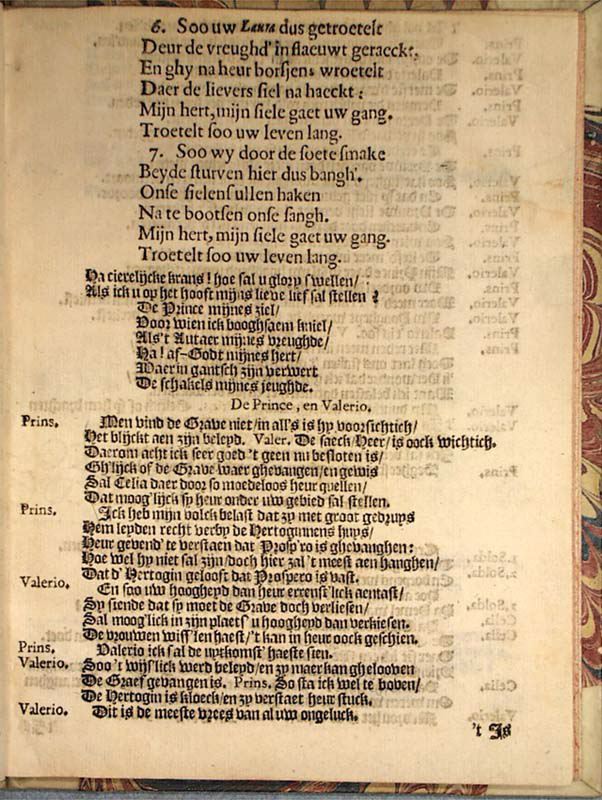 6. Soo uw Laura dus getroetelt
Deur de vreughd' in flaeuwt geraeckt,
En ghy na heur borsjens wroetelt
Daer de lievers siel na haeckt:
Mijn hert, mijn siele gaet uw gang.
Troetelt soo uw leven lang.
7. Soo wy door de soete smake
Beyde sturven hier dus bangh'.
Onse sielen sullen haken
Na te bootsen onse sangh.
Mijn hert, mijn siele gaet uw gang.
Troetelt soo uw leven lang.
Ha cierelijcke krans! hoe sal u glory swellen/
Als ick u op het hooft mijns lieve lief sal stellen?
De Prince mijnes ziel/
Voor wien ick booghsaem kniel/
Als't Autaer mijnes vreughde/
Ha! af-Godt mijnes hert/
Waer in gantsch zijn verwert
De schakels mijnes jeughde.
De Prince, en Valerio.
Prins. Men vind de Grave niet/ in all's is hy voorsichtich/
Het blijckt aen zijn beleyd. Valer. De saeck/ Heer/ is oock wichtich.
Daerom acht ick seer goed 't geen nu besloten is/
Gh'lijck of de Grave waer ghevangen/ en gewis
Sal Celia daer door so moedeloos heur quellen/
Dat moog'lijck sy heur onder uw gebied sal stellen.
Prins. Ick heb mijn volck belast dat zy met groot gedruys
Hem leyden recht verby de Hertoginnens huys/
Heur gevend' te verstaen dat Prosp'ro is ghevanghen:
Hoe wel hy niet sal zijn/ doch hier zal 't meest aen hanghen/
Dat d' Hertogin gelooft dat Prospero is vast.
Valerio. En soo uw hoogheyd dan heur errenst'lick aentast/
Sy siende dat sy moet de Grave doch verliesen/
Sal moog'lick in zijn plaets u hoogheyd dan verkiesen.
De vrouwen wiss'len haest/ 't kan in heur oock geschien.
Prins. Valerio ick sal de uytkomst haeste sien.
Valerio. Soo 't wijslick werd beleyd/ en zy maer kan ghelooven
De Graef gevangen is. Prins. So sta ick wel te boven/
De Hertogin is kloeck/ en zy verstaet heur stuck.
Valerio. Dit is de meeste vrees van al uw ongeluck.
't Is